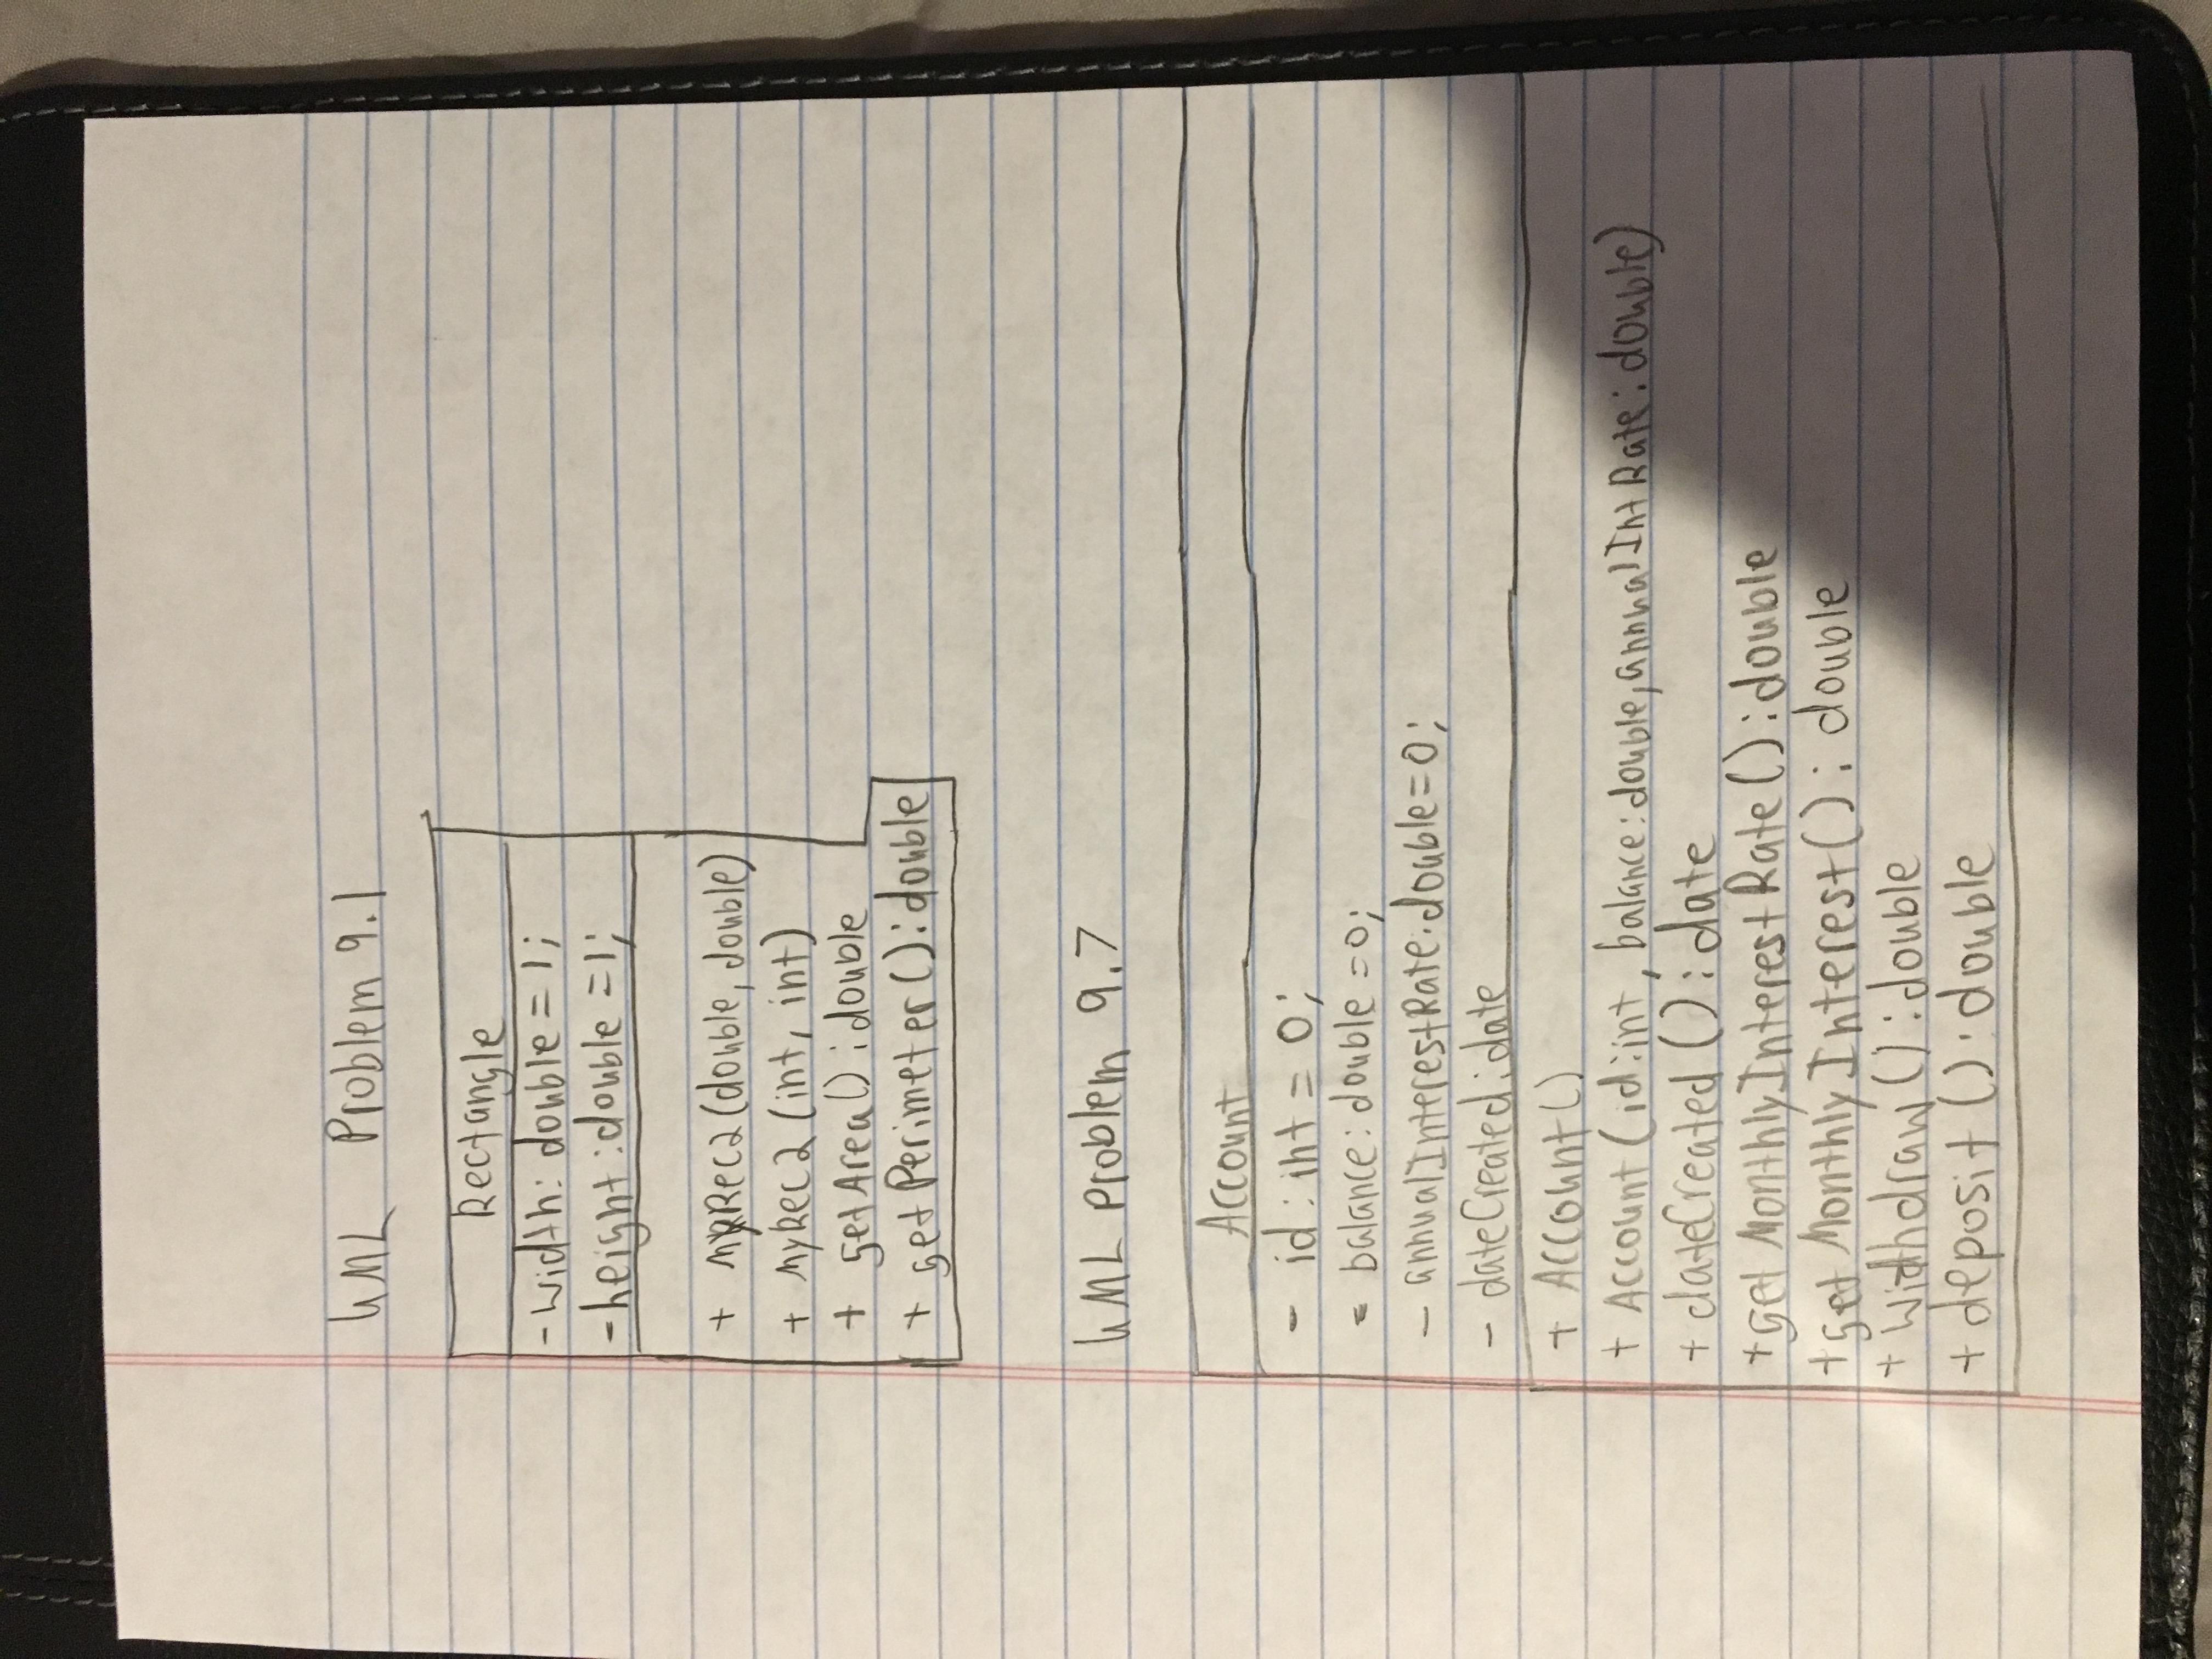 UML Problem 9.1
Rectangle
- width: double = 1;
- height: double = 1;
+ myRec2(double, double)
+ myRec2 (int, int)
+ getArea() : double
+ getPerimeter() : double
UML problem 9.7
Account
- id : int = 0;
- balance: double = 0;
- annualInterestRate: double = 0;
- dateCreated: date
+ Account()
+ Account (id:int, balance: double, annualIntRate: double)
+ dateCreated () : date
+ get MonthlyInterestRate() : double
+ get MonthlyInterest() : double
+ withdraw () : double
+ deposit () : double